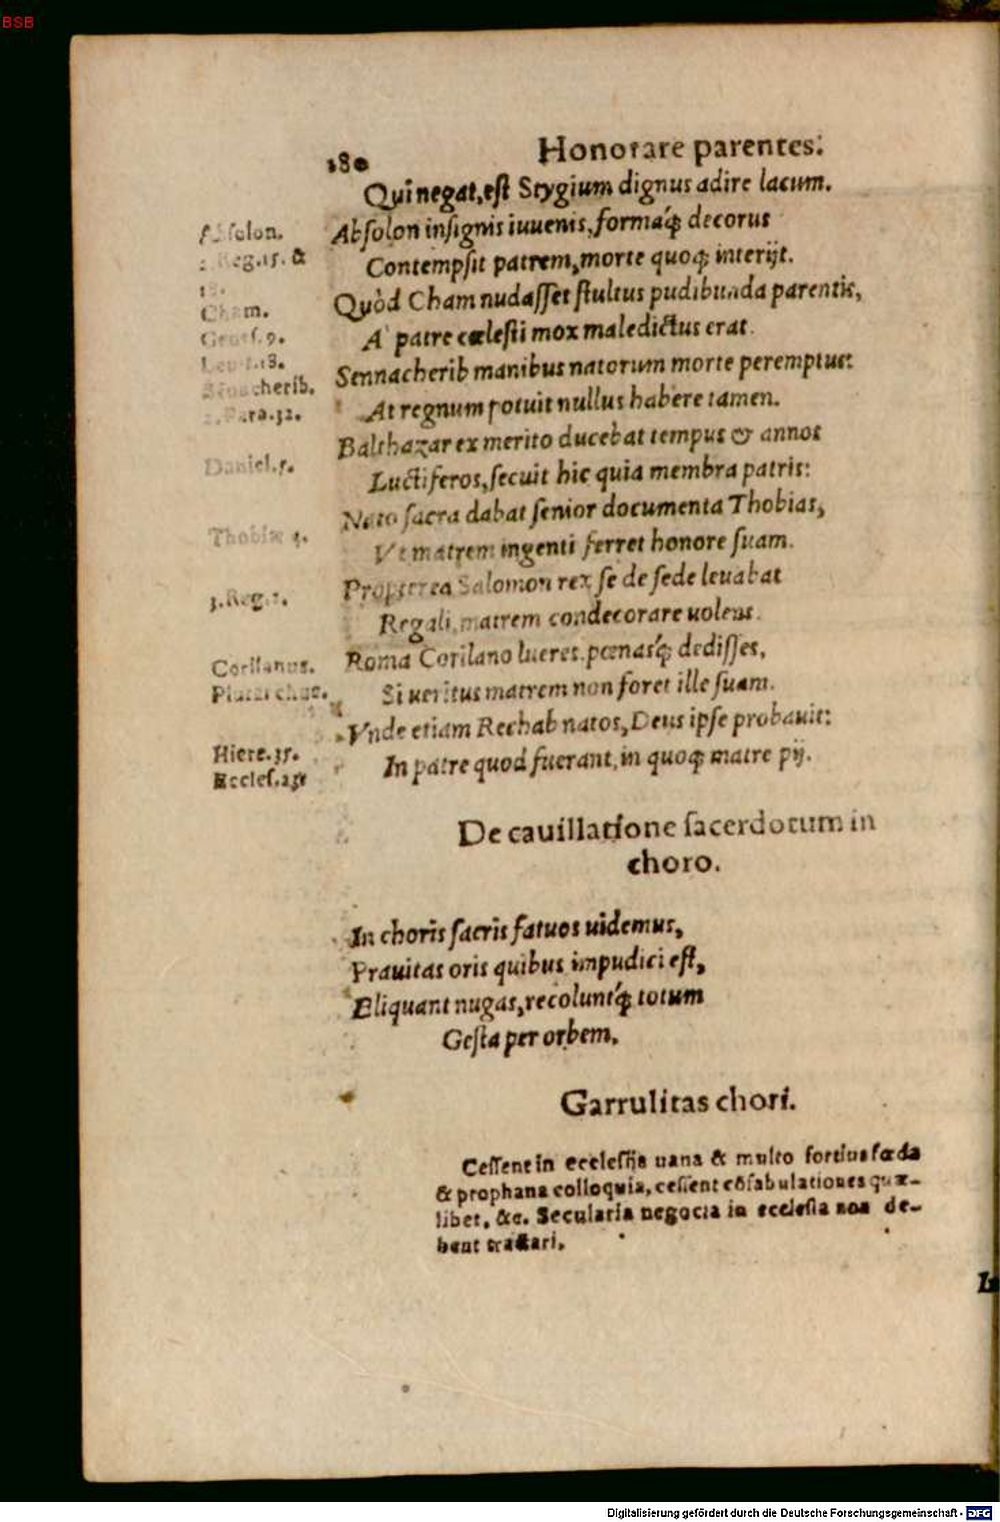 BSB
180 Honorare parentes.
Qui negat, est Stygium dignus adire lacum.
Absolon. Absolon insignis iuuenis, formaq́; decorus
2. Reg. 15. & Contempsit patrem, morte quoq; interijt.
18.
Cham. Quòd Cham nudasset stultus pudibunda parentis,
Genes. 9. A' patre cœlesti mox maledictus erat.
Leuit. 18.
Sennacherib. Sennacherib manibus natorum morte peremptus:
2. Para. 32. At regnum potuit nullus habere tamen.
Balthazar ex merito ducebat tempus & annos
Daniel. 5. Luctiferos, secuit hic quia membra patris:
Nato sacra dabat senior documenta Thobias,
Thobiæ 4. Vt matrem ingenti ferret honore suam.
Propterea Salomon rex se de sede leuabat
3. Reg. 2. Regali, matrem condecorare uolens.
Corilanus. Roma Corilano lueres, pœnasq́; dedisses,
Plutarchus. Si ueritus matrem non foret ille suam.
Vnde etiam Rechab natos, Deus ipse probauit:
Hiere. 35. In patre quod fuerant, in quoq; matre pij.
Eccles.
De cauillatione sacerdotum in
choro.
In choris sacris fatuos uidemus,
Prauitas oris quibus impudici est,
Eliquant nugas, recoluntq́; totum
Gesta per orbem.
Garrulitas chori.
Cessent in ecclesijs uana & multo fortius fœda
& prophana colloquia, cessent cõfabulationes quæ-
libet, &c. Secularia negocia in ecclesia non de-
bent tractari.
Digitalisierung gefördert durch die Deutsche Forschungsgemeinschaft - DFG